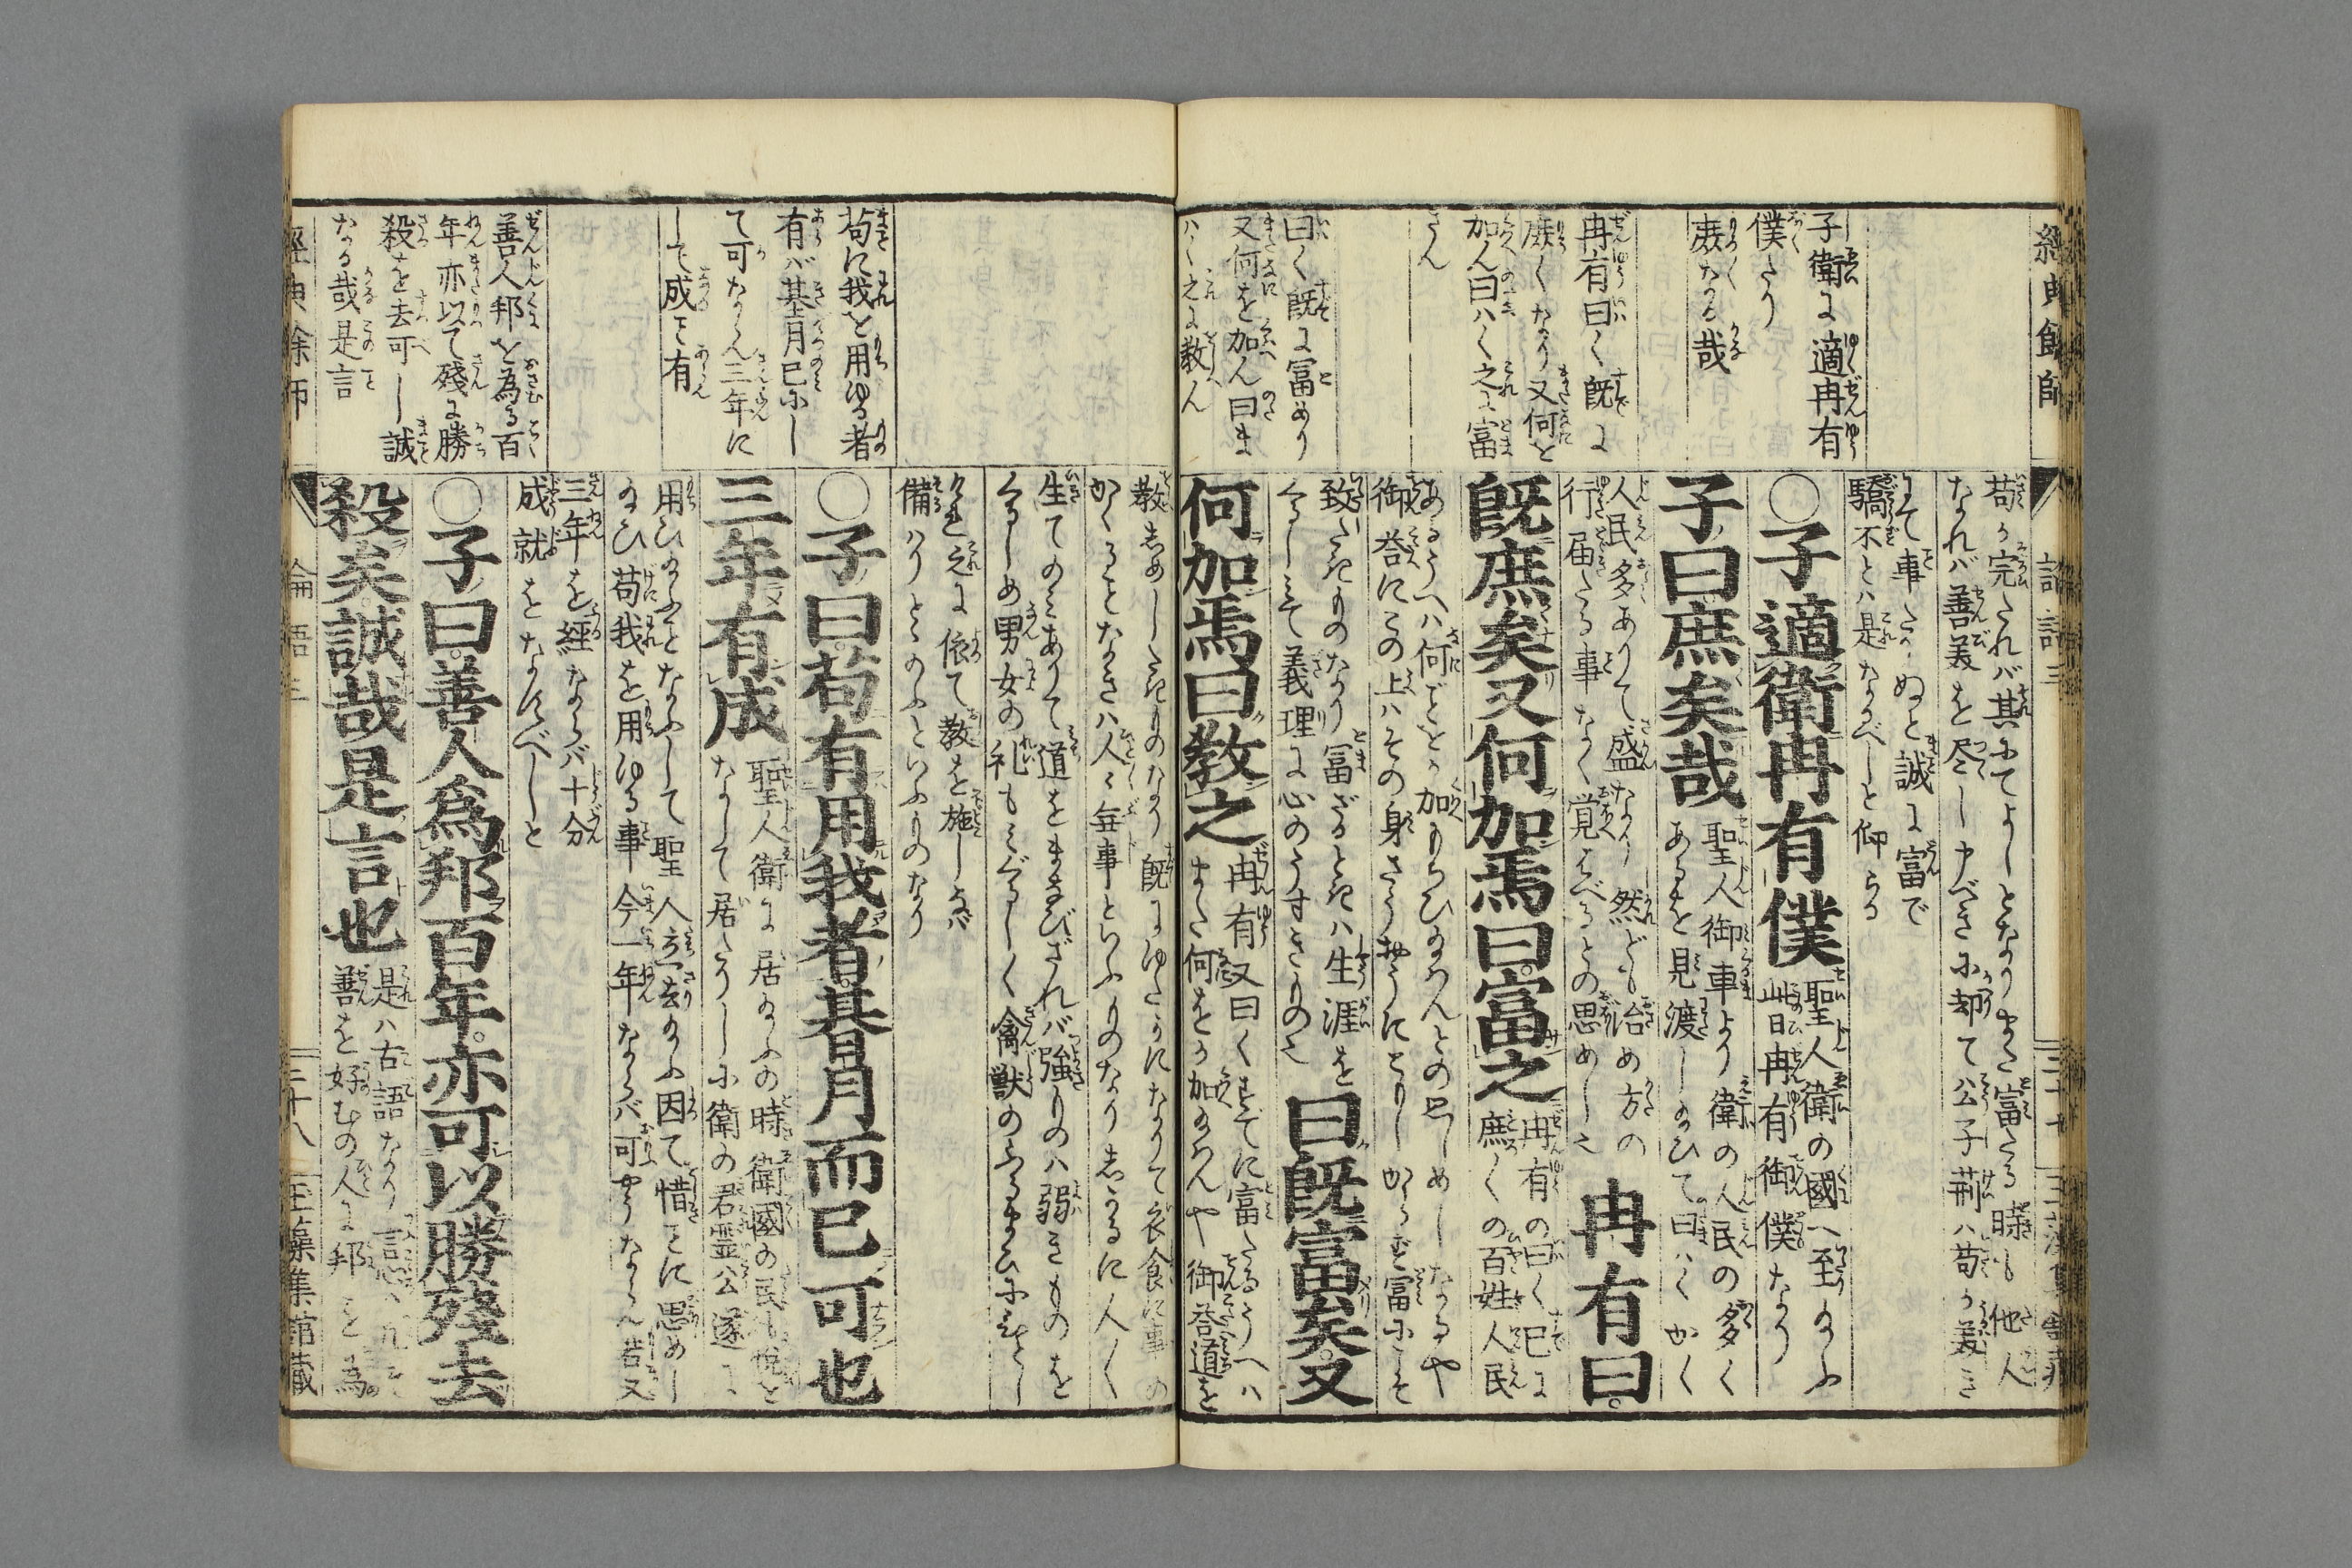 經典餘師
子衛に適冉有
僕たり
庶なる哉
冉有曰く既に
庶くなり又何を
加ん曰ハく之を富
さん
曰く既に富めり
又何を加ん曰ま
ハく之に教ん
苟に完たれバ其にてよしとなりまた富たる時も他人
なれバ善美を尽し申べきに却て公子荊ハ苟に美き
にて事たりぬと誠に富で
驕不とハ是なるべしと仰らる
○子適衛冉有僕
聖人衛の國へ至給ふ
此日冉有御僕なり
子曰庶矣哉
聖人御車より衛の人民の多く
あるを見渡し給ひて曰ハくかく
人民多ありて盛なり然ども治め方の
行届たる事なく覚はべるとの思めし也
冉有曰。
既庶矣又何加焉曰。富之
冉有の曰く已に
庶くの百姓人民
あるうへハ何ごとを加もちひ給んとの思しめしなるや
御荅にこの上ハその身さうおうにことしからず富にこそ
致たきものなり富ざるときハ生涯を
くるしミて義理に心のうすきもの也
曰既富矣。又
何加焉曰教之
冉有又曰くすでに富たるうへハ
また何をか加給んや御荅道を
教しめしたきものなり既にゆたかになりて衣食に事の
かくることなきハ人〻毎事といふものなりしかるに人〻
生てのミありて道をまなびざれバ強ものハ弱きものを
くるしめ男女の礼もミだりしく禽獣のふるまひにひとし
けれ之に依て教を施しなバ
備ハりとゝのふといふものなり
苟に我を用ゆる者
有バ朞月已にし
て可ならん三年に
して成こと有ん
○子曰。苟有用我者。朞月而已可也
三年有成
聖人衛に居給ふの時衛國の民も悦を
なして居たりしに衛の君霊公遂に
用ひ給ふことなふして聖人立去給ふ因て惜ことに思めし
給ひ苟我を用ゆる事今一年ならバ可やうならん若又
三年を經ならバ十分
成就をなんべしと
善人邦を為る百
年亦以て殘に勝
殺を去可し誠
なる哉是言
○子曰。善人爲邦百年。亦可以勝殘去
殺矣。誠哉是言也
是ハ古語なり
善を好むの人に邦を為
經典餘師
論語三
三十八